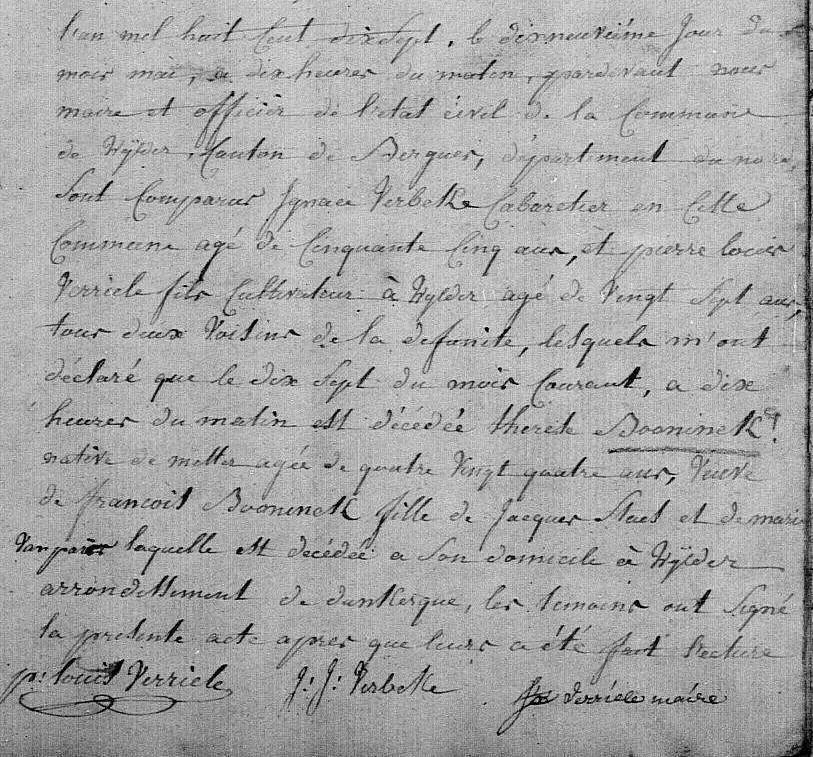 l'an mel huit Cent dix Sept, le dixneuvième Jour du
mois mai, a dix heures du matin, pardevant nous
maire et officier de l'etat civil de la Commune
de Wÿlder, Canton de Bergues, département du nord,
Sont Comparus Jgnace Verbeke Cabaretier en Cette
Commune agé de Cinquante Cinq ans, et pierre louis
Verriele fils Cultivateur à Wÿlder agé de Vingt Sept ans,
tous deux Voisins de la defunte, lesquels m'ont
déclaré que le dix Sept du mois Courant, a dix
heures du matin est décédée therese Booninck
native de agée de quatre Vingt quatre ans, Veuve
de francois Booninck fille de Jacques Staes et de marie
laquelle est decédée a Son domicile à Wÿlder
arrondissement de dunkerque, les temoins ont Signé
la presente acte apres que leurs a été fait lecture
p: louis Verriele J: J: Verbeke Verriele maire